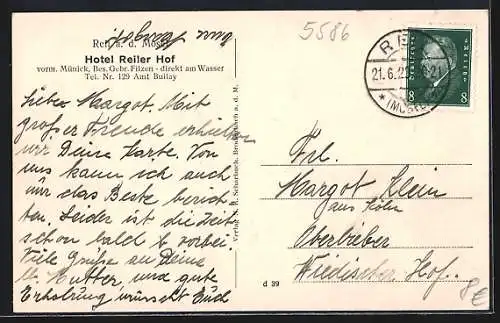 5586
Reil a. d. Mosel
Hotel Reiler Hof
vorm. Münick, Bes. Gebr. Filzen - direkt am Wasser
Tel. Nr. 129 Amt Bullay
Lieber Margot. Mit
großer Freude erhielten
wir Deine Karte. Von
uns kann ich auch
nur das Beste berich-
ten. Leider ist die Zeit
schon bald vorbei
Viele Grüße an Deine
lb. Mutter, und gute
Erholung wünscht Euch
d 39
21.6.2
(MOSEL)
Deutsches Reich
8 8
Frl.
Margot Klein
aus Köln
Oberbieber
Wiedischer Hof.
8€